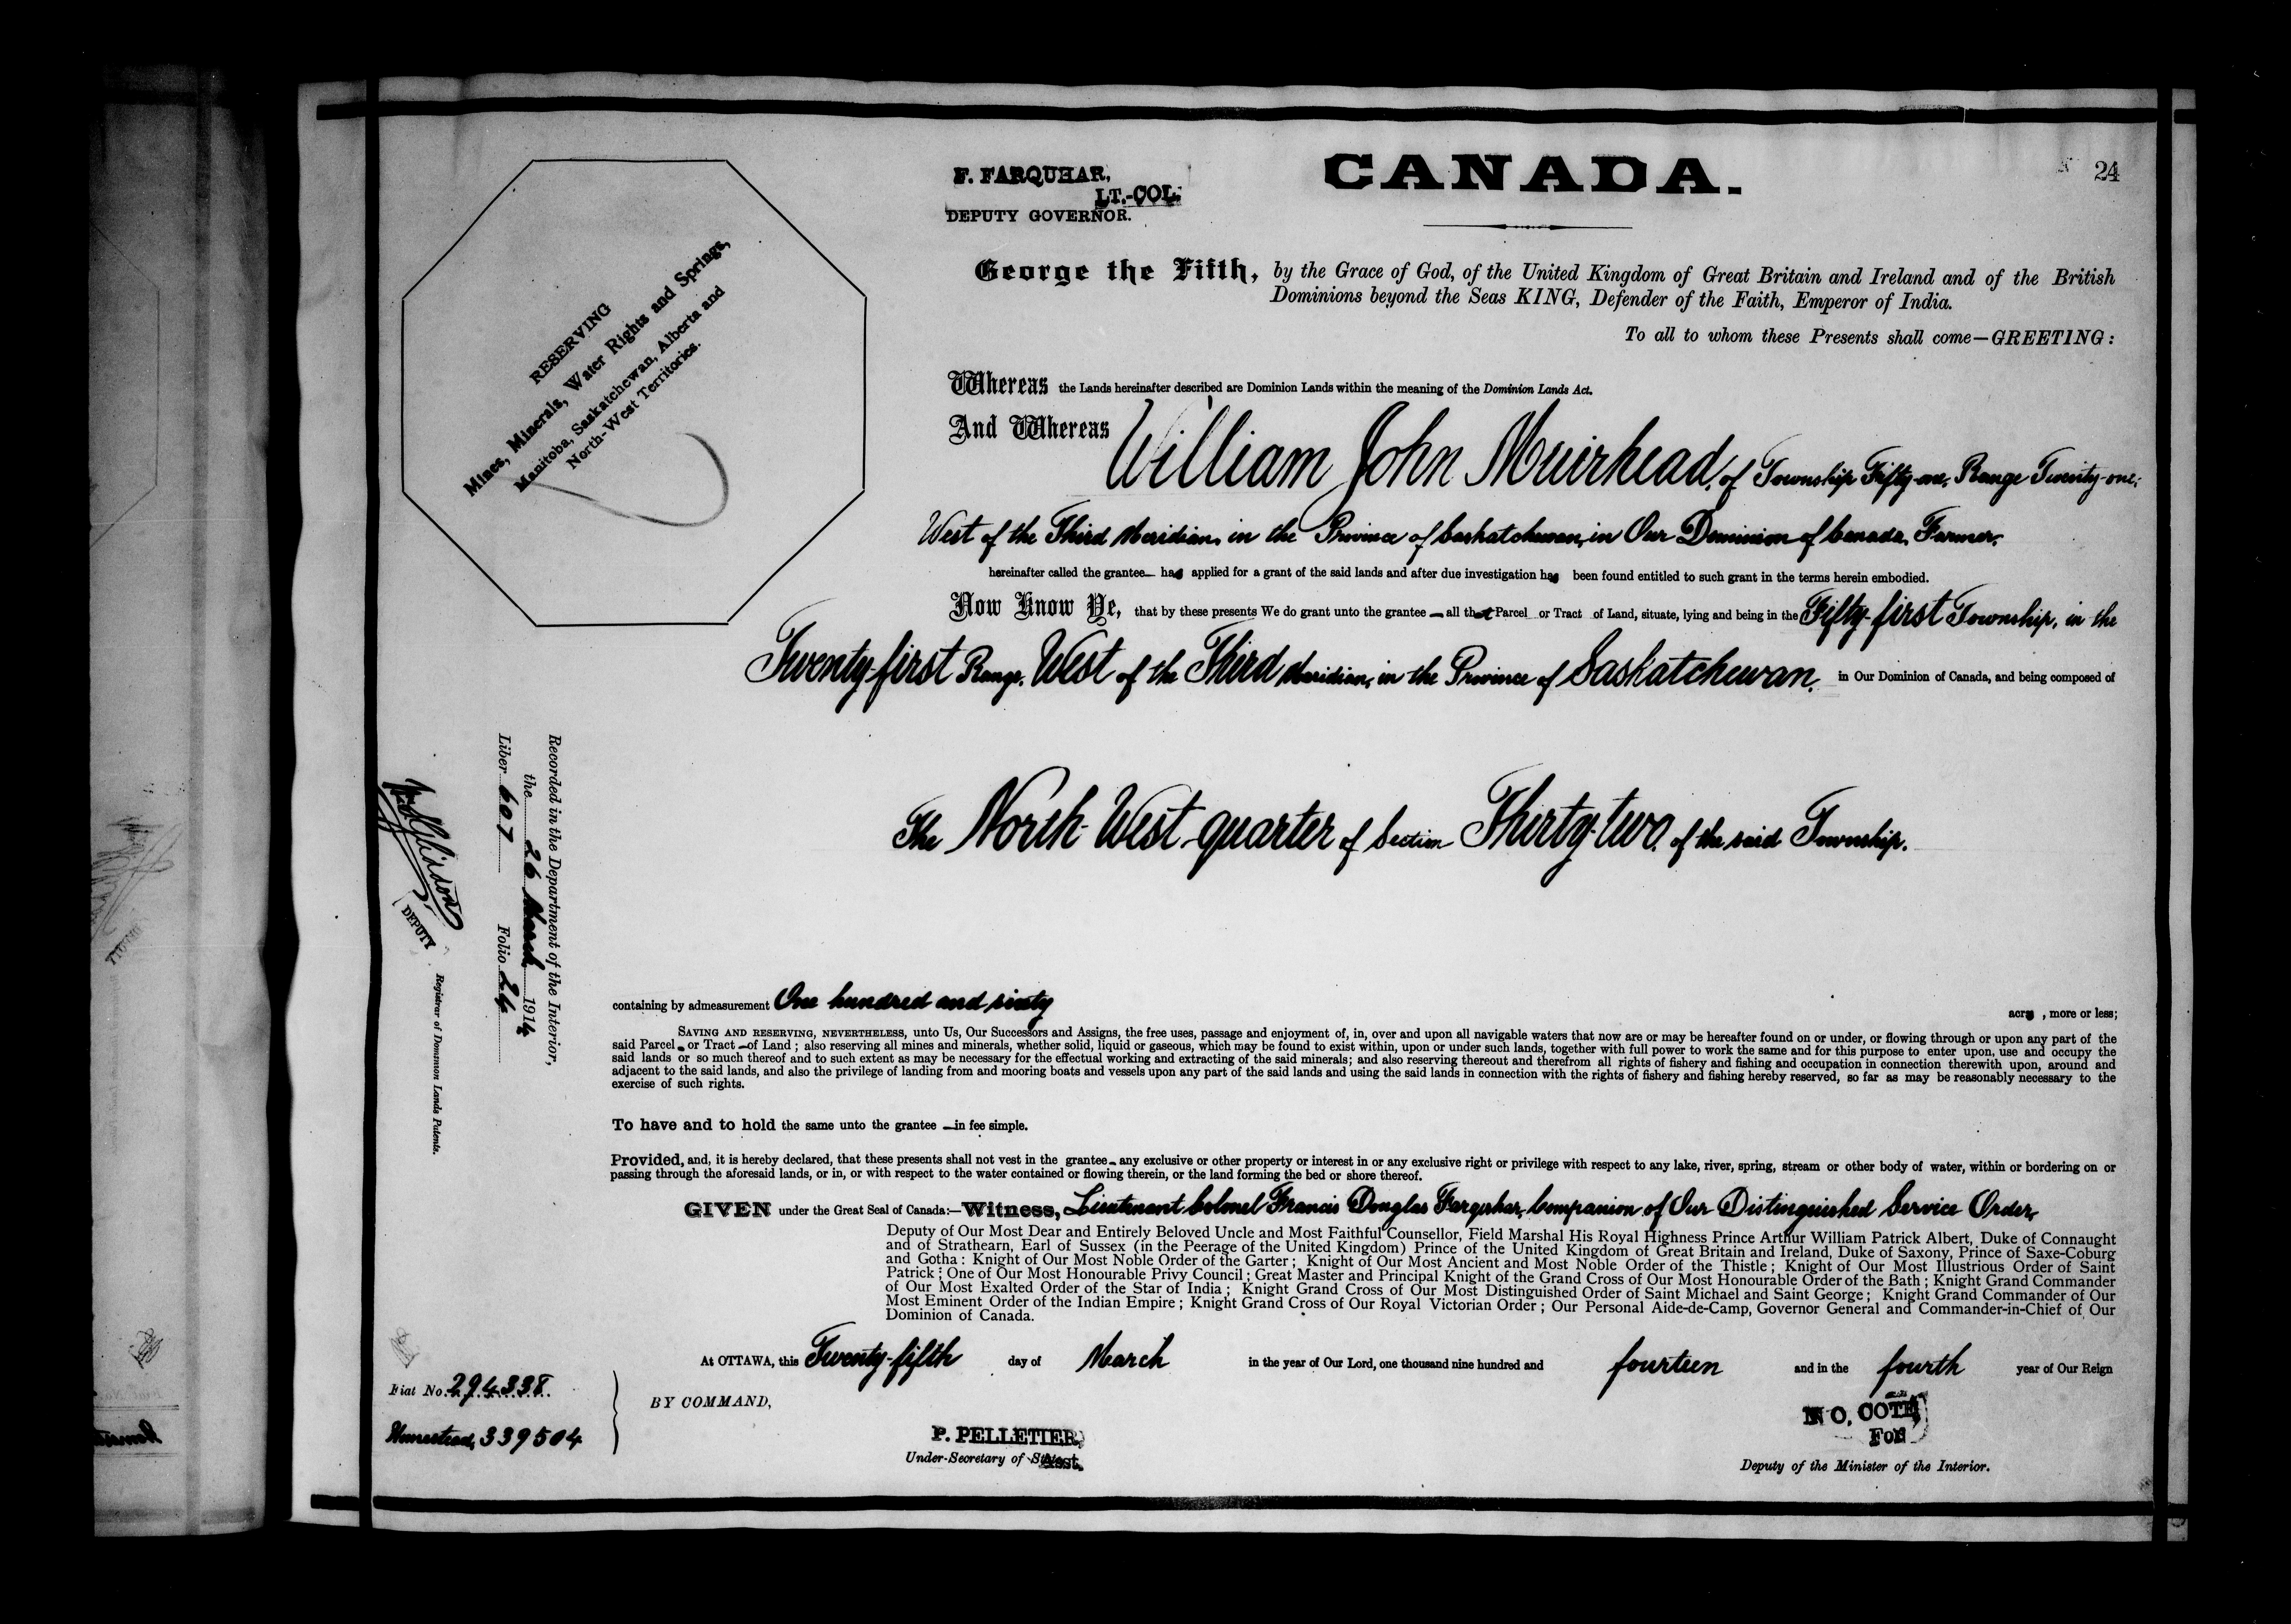 24
F. FARQUHAR,
LT.-COL.
DEPUTY GOVERNOR.
CANADA.
RESERVING
Mines, Minerals, Water Rights and Springs,
Manitoba, Saskatchewan, Alberta and
North-West Territories.
George the Fifth, by the Grace of God, of the United Kingdom of Great Britain and Ireland and of the British
Dominions beyond the Seas KING, Defender of the Faith, Emperor of India.
To all to whom these Presents shall come—GREETING:
Whereas the Lands hereinafter described are Dominion Lands within the meaning of the Dominion Lands Act.
And Whereas William John Muirhead, of Township Fifty-one, Range Twenty-one,
West of the Third Meridian, in the Province of Saskatchewan, in Our Dominion of Canada, Farmer,
hereinafter called the grantee— has applied for a grant of the said lands and after due investigation has been found entitled to such grant in the terms herein embodied.
Now Know Ye, that by these presents We do grant unto the grantee — all that Parcel or Tract of Land, situate, lying and being in the Fifty-first Township, in the
Twenty-first Range, West of the Third Meridian, in the Province of Saskatchewan, in Our Dominion of Canada, and being composed of
The North-West quarter of Section Thirty-two, of the said Township.
containing by admeasurement One hundred and sixty acres, more or less;
SAVING AND RESERVING, NEVERTHELESS, unto Us, Our Successors and Assigns, the free uses, passage and enjoyment of, in, over and upon all navigable waters that now are or may be hereafter found on or under, or flowing through or upon any part of the
said Parcel or Tract — of Land; also reserving all mines and minerals, whether solid, liquid or gaseous, which may be found to exist within, upon or under such lands, together with full power to work the same and for this purpose to enter upon, use and occupy the
said lands or so much thereof and to such extent as may be necessary for the effectual working and extracting of the said minerals; and also reserving thereout and therefrom all rights of fishery and fishing and occupation in connection therewith upon, around and
adjacent to the said lands, and also the privilege of landing from and mooring boats and vessels upon any part of the said lands and using the said lands in connection with the rights of fishery and fishing hereby reserved, so far as may be reasonably necessary to the
exercise of such rights.
To have and to hold the same unto the grantee — in fee simple.
Provided, and, it is hereby declared, that these presents shall not vest in the grantee — any exclusive or other property or interest in or any exclusive right or privilege with respect to any lake, river, spring, stream or other body of water, within or bordering on or
passing through the aforesaid lands, or in, or with respect to the water contained or flowing therein, or the land forming the bed or shore thereof.
GIVEN under the Great Seal of Canada:—Witness, Lieutenant Colonel Francis Douglas Farquhar, Companion of Our Distinguished Service Order,
Deputy of Our Most Dear and Entirely Beloved Uncle and Most Faithful Counsellor, Field Marshal His Royal Highness Prince Arthur William Patrick Albert, Duke of Connaught
and of Strathearn, Earl of Sussex (in the Peerage of the United Kingdom) Prince of the United Kingdom of Great Britain and Ireland, Duke of Saxony, Prince of Saxe-Coburg
and Gotha: Knight of Our Most Noble Order of the Garter; Knight of Our Most Ancient and Most Noble Order of the Thistle; Knight of Our Most Illustrious Order of Saint
Patrick; One of Our Most Honourable Privy Council; Great Master and Principal Knight of the Grand Cross of Our Most Honourable Order of the Bath; Knight Grand Commander
of Our Most Exalted Order of the Star of India; Knight Grand Cross of Our Most Distinguished Order of Saint Michael and Saint George; Knight Grand Commander of Our
Most Eminent Order of the Indian Empire; Knight Grand Cross of Our Royal Victorian Order; Our Personal Aide-de-Camp, Governor General and Commander-in-Chief of Our
Dominion of Canada.
At OTTAWA, this Twenty-fifth day of March in the year of Our Lord, one thousand nine hundred and fourteen and in the fourth year of Our Reign
BY COMMAND,
P. PELLETIER,
Under-Secretary of State
Asst.
N. O. COTE
For
Deputy of the Minister of the Interior.
Fiat No. 294338
Homestead, 339504
Recorded in the Department of the Interior,
the 26 March 1914
Liber 607 Folio 24
DEPUTY
Registrar of Dominion Lands Patents.